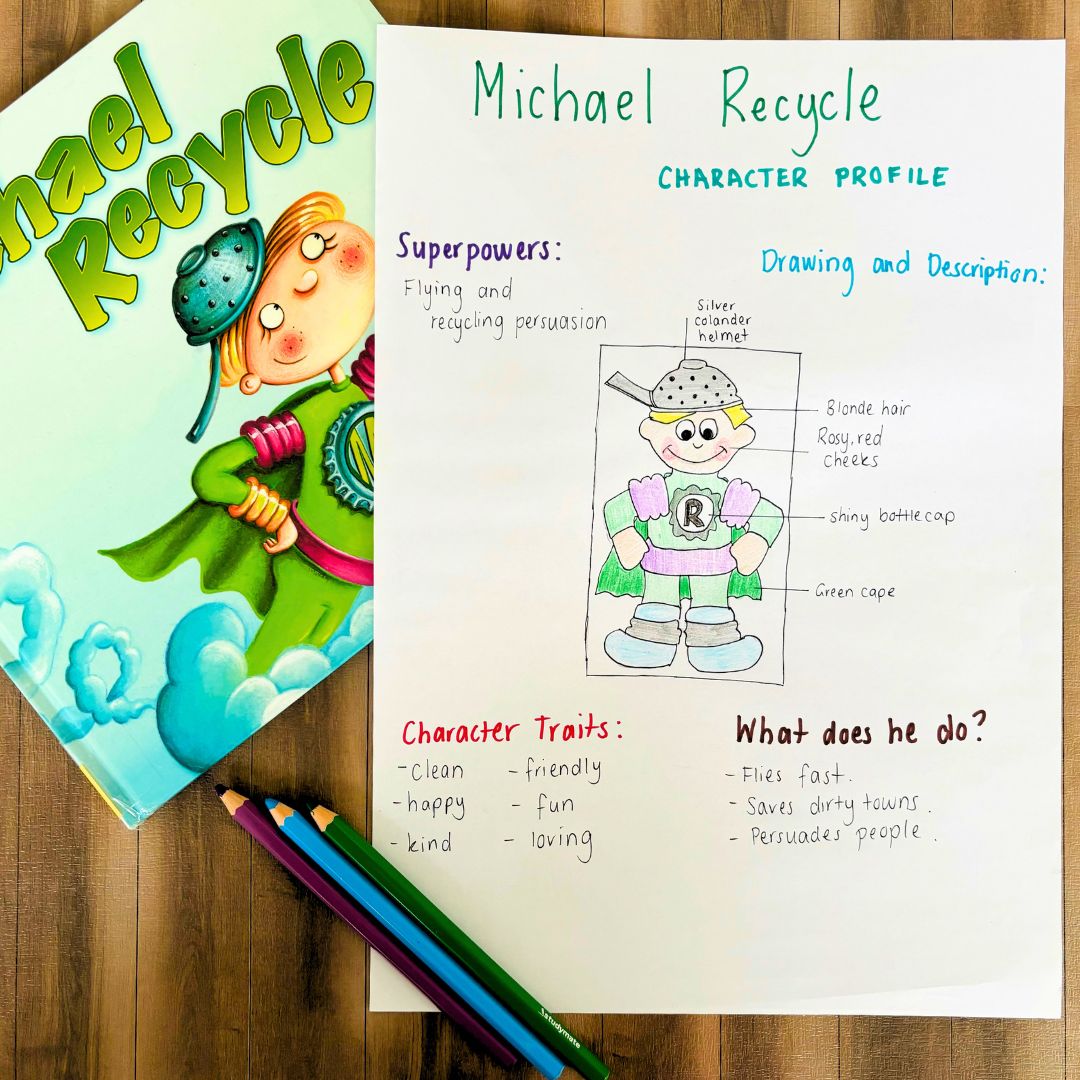 hael
Recycle
Michael Recycle
CHARACTER PROFILE
Superpowers:
Flying and
recycling persuasion
Drawing and Description:
Silver
colander
helmet
Blonde hair
Rosy, red
cheeks
R
shiny bottlecap
Green cape
Character Traits:
- Clean - friendly
- happy - fun
- kind - loving
What does he do?
- Flies fast.
- Saves dirty towns.
- Persuades people.
studymate